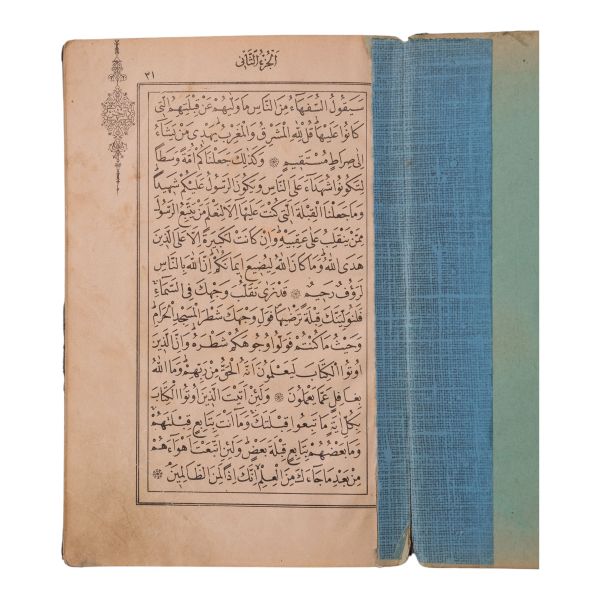 الجزء الثاني
٣١
سَيَقُولُ السُّفَهَاءُ مِنَ النَّاسِ مَا وَلّٰيهُمْ عَنْ قِبْلَتِهِمُ الَّتِي
كَانُوا عَلَيْهَا قُلْ لِلّٰهِ الْمَشْرِقُ وَالْمَغْرِبُ يَهْدِي مَنْ يَشَاءُ
اِلٰى صِرَاطٍ مُسْتَقِيمٍ ۝ وَكَذٰلِكَ جَعَلْنَاكُمْ اُمَّةً وَسَطًا
لِتَكُونُوا شُهَدَاءَ عَلَى النَّاسِ وَيَكُونَ الرَّسُولُ عَلَيْكُمْ شَهِيدًا
وَمَا جَعَلْنَا الْقِبْلَةَ الَّتِي كُنْتَ عَلَيْهَا اِلَّا لِنَعْلَمَ مَنْ يَتَّبِعُ الرَّسُولَ
مِمَّنْ يَنْقَلِبُ عَلٰى عَقِبَيْهِ وَاِنْ كَانَتْ لَكَبِيرَةً اِلَّا عَلَى الَّذِينَ
هَدَى اللّٰهُ وَمَا كَانَ اللّٰهُ لِيُضِيعَ اِيمَانَكُمْ اِنَّ اللّٰهَ بِالنَّاسِ
لَرَؤُفٌ رَحِيمٌ ۝ قَدْ نَرٰى تَقَلُّبَ وَجْهِكَ فِي السَّمَاءِ
فَلَنُوَلِّيَنَّكَ قِبْلَةً تَرْضٰيهَا فَوَلِّ وَجْهَكَ شَطْرَ الْمَسْجِدِ الْحَرَامِ
وَحَيْثُ مَا كُنْتُمْ فَوَلُّوا وُجُوهَكُمْ شَطْرَهُ وَاِنَّ الَّذِينَ
اُوتُوا الْكِتَابَ لَيَعْلَمُونَ اَنَّهُ الْحَقُّ مِنْ رَبِّهِمْ وَمَا اللّٰهُ
بِغَافِلٍ عَمَّا يَعْمَلُونَ ۝ وَلَئِنْ اَتَيْتَ الَّذِينَ اُوتُوا الْكِتَابَ
بِكُلِّ اٰيَةٍ مَا تَبِعُوا قِبْلَتَكَ وَمَا اَنْتَ بِتَابِعٍ قِبْلَتَهُمْ
وَمَا بَعْضُهُمْ بِتَابِعٍ قِبْلَةَ بَعْضٍ وَلَئِنِ اتَّبَعْتَ اَهْوَاءَهُمْ
مِنْ بَعْدِ مَا جَاءَكَ مِنَ الْعِلْمِ اِنَّكَ اِذًا لَمِنَ الظَّالِمِينَ ۝